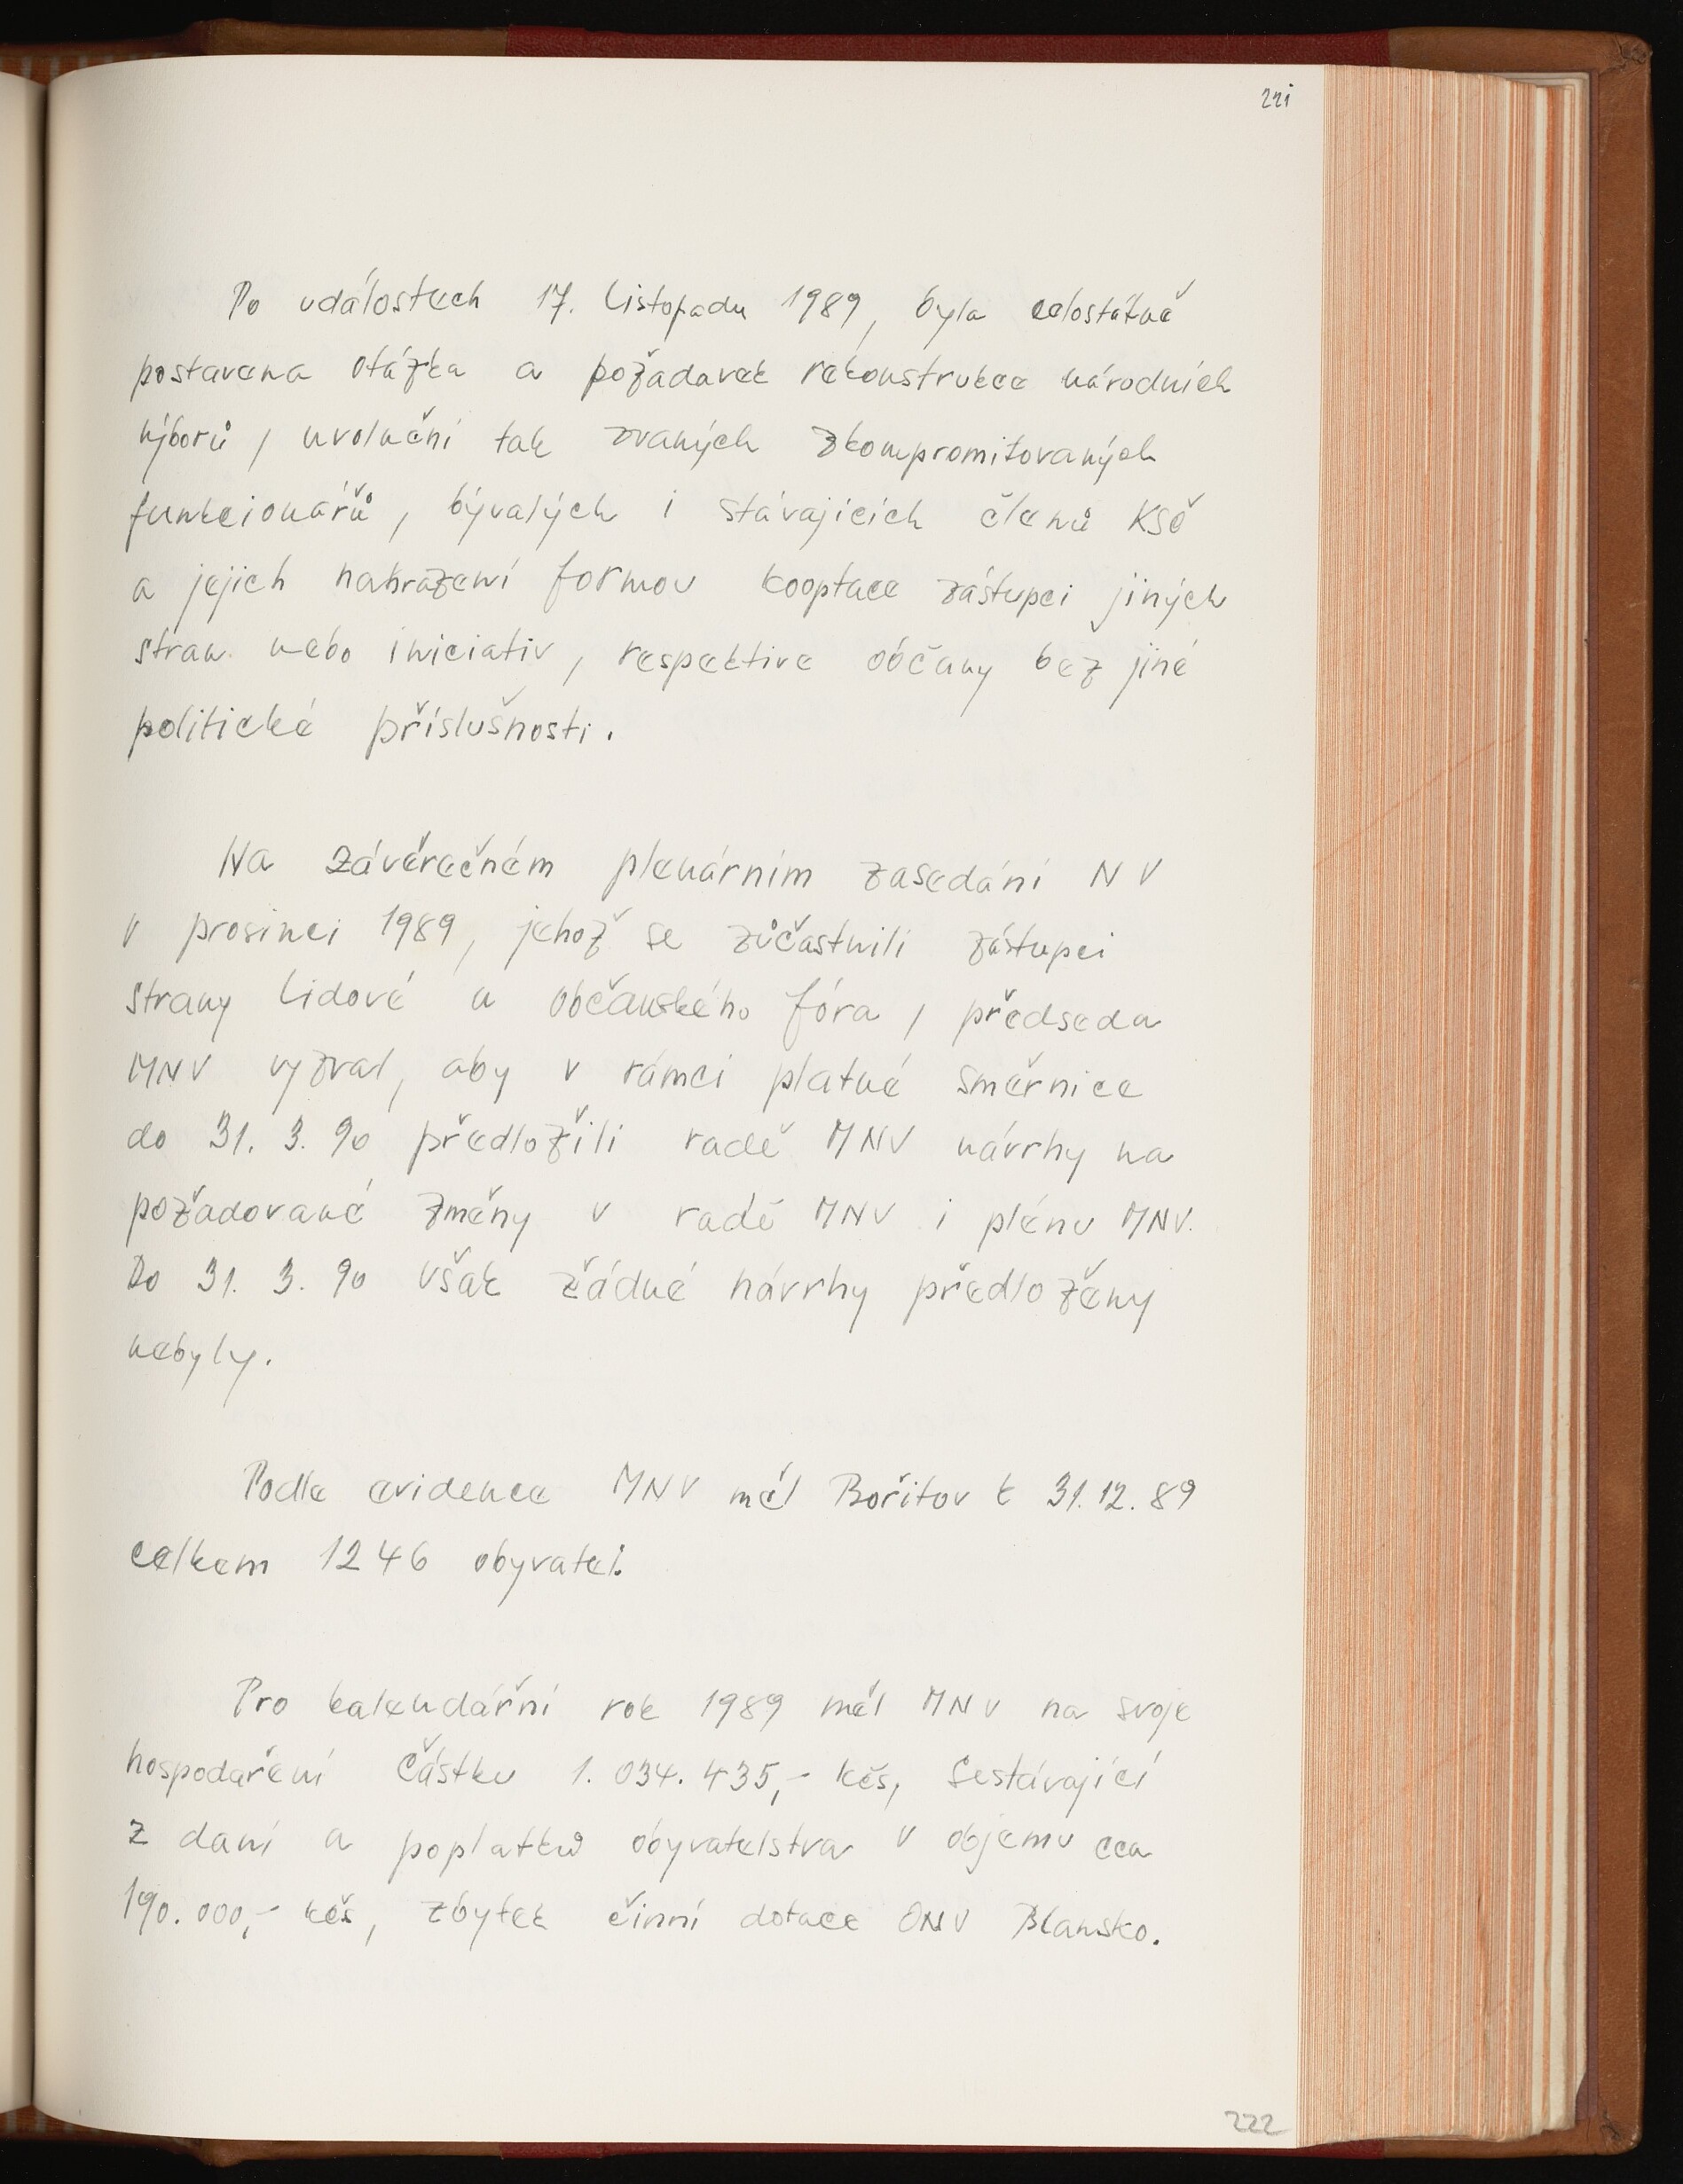 221
Po událostech 17. listopadu 1989, byla celostátně
postavena otázka a požadavek rekonstrukce národních
výborů, uvolnění tak zvaných zkompromitovaných
funkcionářů, bývalých i stávajících členů KSČ
a jejich nahrazení formou kooptace zástupci jiných
stran nebo iniciativ, respektive občany bez jiné
politické příslušnosti.
Na závěrečném plenárním zasedání NV
v prosinci 1989, jehož se zůčastnili zástupci
strany lidové a občanského fóra, předseda
MNV vyzval, aby v rámci platné směrnice
do 31. 3. 90 předložili radě MNV návrhy na
požadované změny v radě MNV i plénu MNV.
Do 31. 3. 90 však žádné návrhy předloženy
nebyly.
Podle evidence MNV měl Bořitov k 31.12.89
celkem 1246 obyvatel.
Pro kalendářní rok 1989 měl MNV na svoje
hospodaření částku 1.034.435,- kčs, sestávající
z daní a poplatků obyvatelstva v objemu cca
190.000,- kčs, zbytek činní dotace ONV Blansko.
222